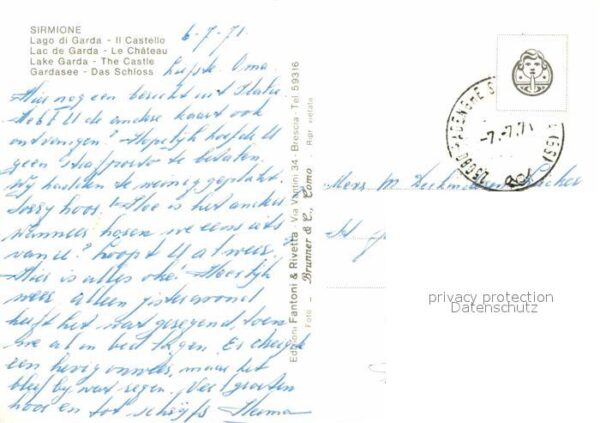 SIRMIONE
Lago di Garda - Il Castello
Lac de Garda - Le Château
Lake Garda - The Castle
Gardasee - Das Schloss
6-7-71.
Liefste Oma.
Hier nog een bericht uit Italie
Hebt U de andere kaart ook
ontvangen? Hopelijk hoefde U
geen strafporto te betalen.
Wij hadden te weinig geplakt.
Sorry hoor. Hoe is het anders
wanneer horen we eens iets
van U? Loopt U al weer.
Hier is alles oke. Heerlijk
weer, alleen gisteravond
heeft het wat geregend, toen
we al in bed lagen. Er dreigde
een hevig onweer, maar het
bleef bij wat regen. Veel groeten
hoor en tot schrijfs
Edizioni Fantoni & Rivetta - Via Vantini 34 - Brescia - Tel. 59316
Foto - Brunner & C., Como - Ripr. vietata
25080 PADENGHE S (BS)
-7.-7.71
Mevr. M.
privacy protection
Datenschutz